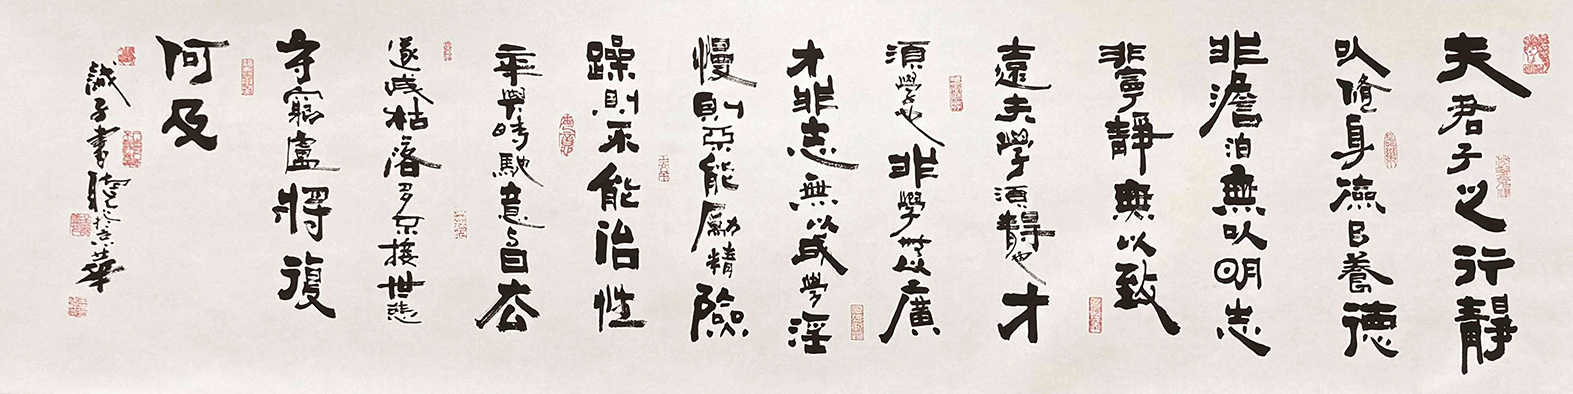 夫君子之行靜
以脩身儉以養德
非澹泊無以明志
非寧靜無以致
遠夫學須靜也才
須學也非學無以廣
才非志無以成學淫
慢則不能勵精險
躁則不能治性
年與時馳意與日去
遂成枯落多不接世悲
守窮廬將復
何及
誡子書